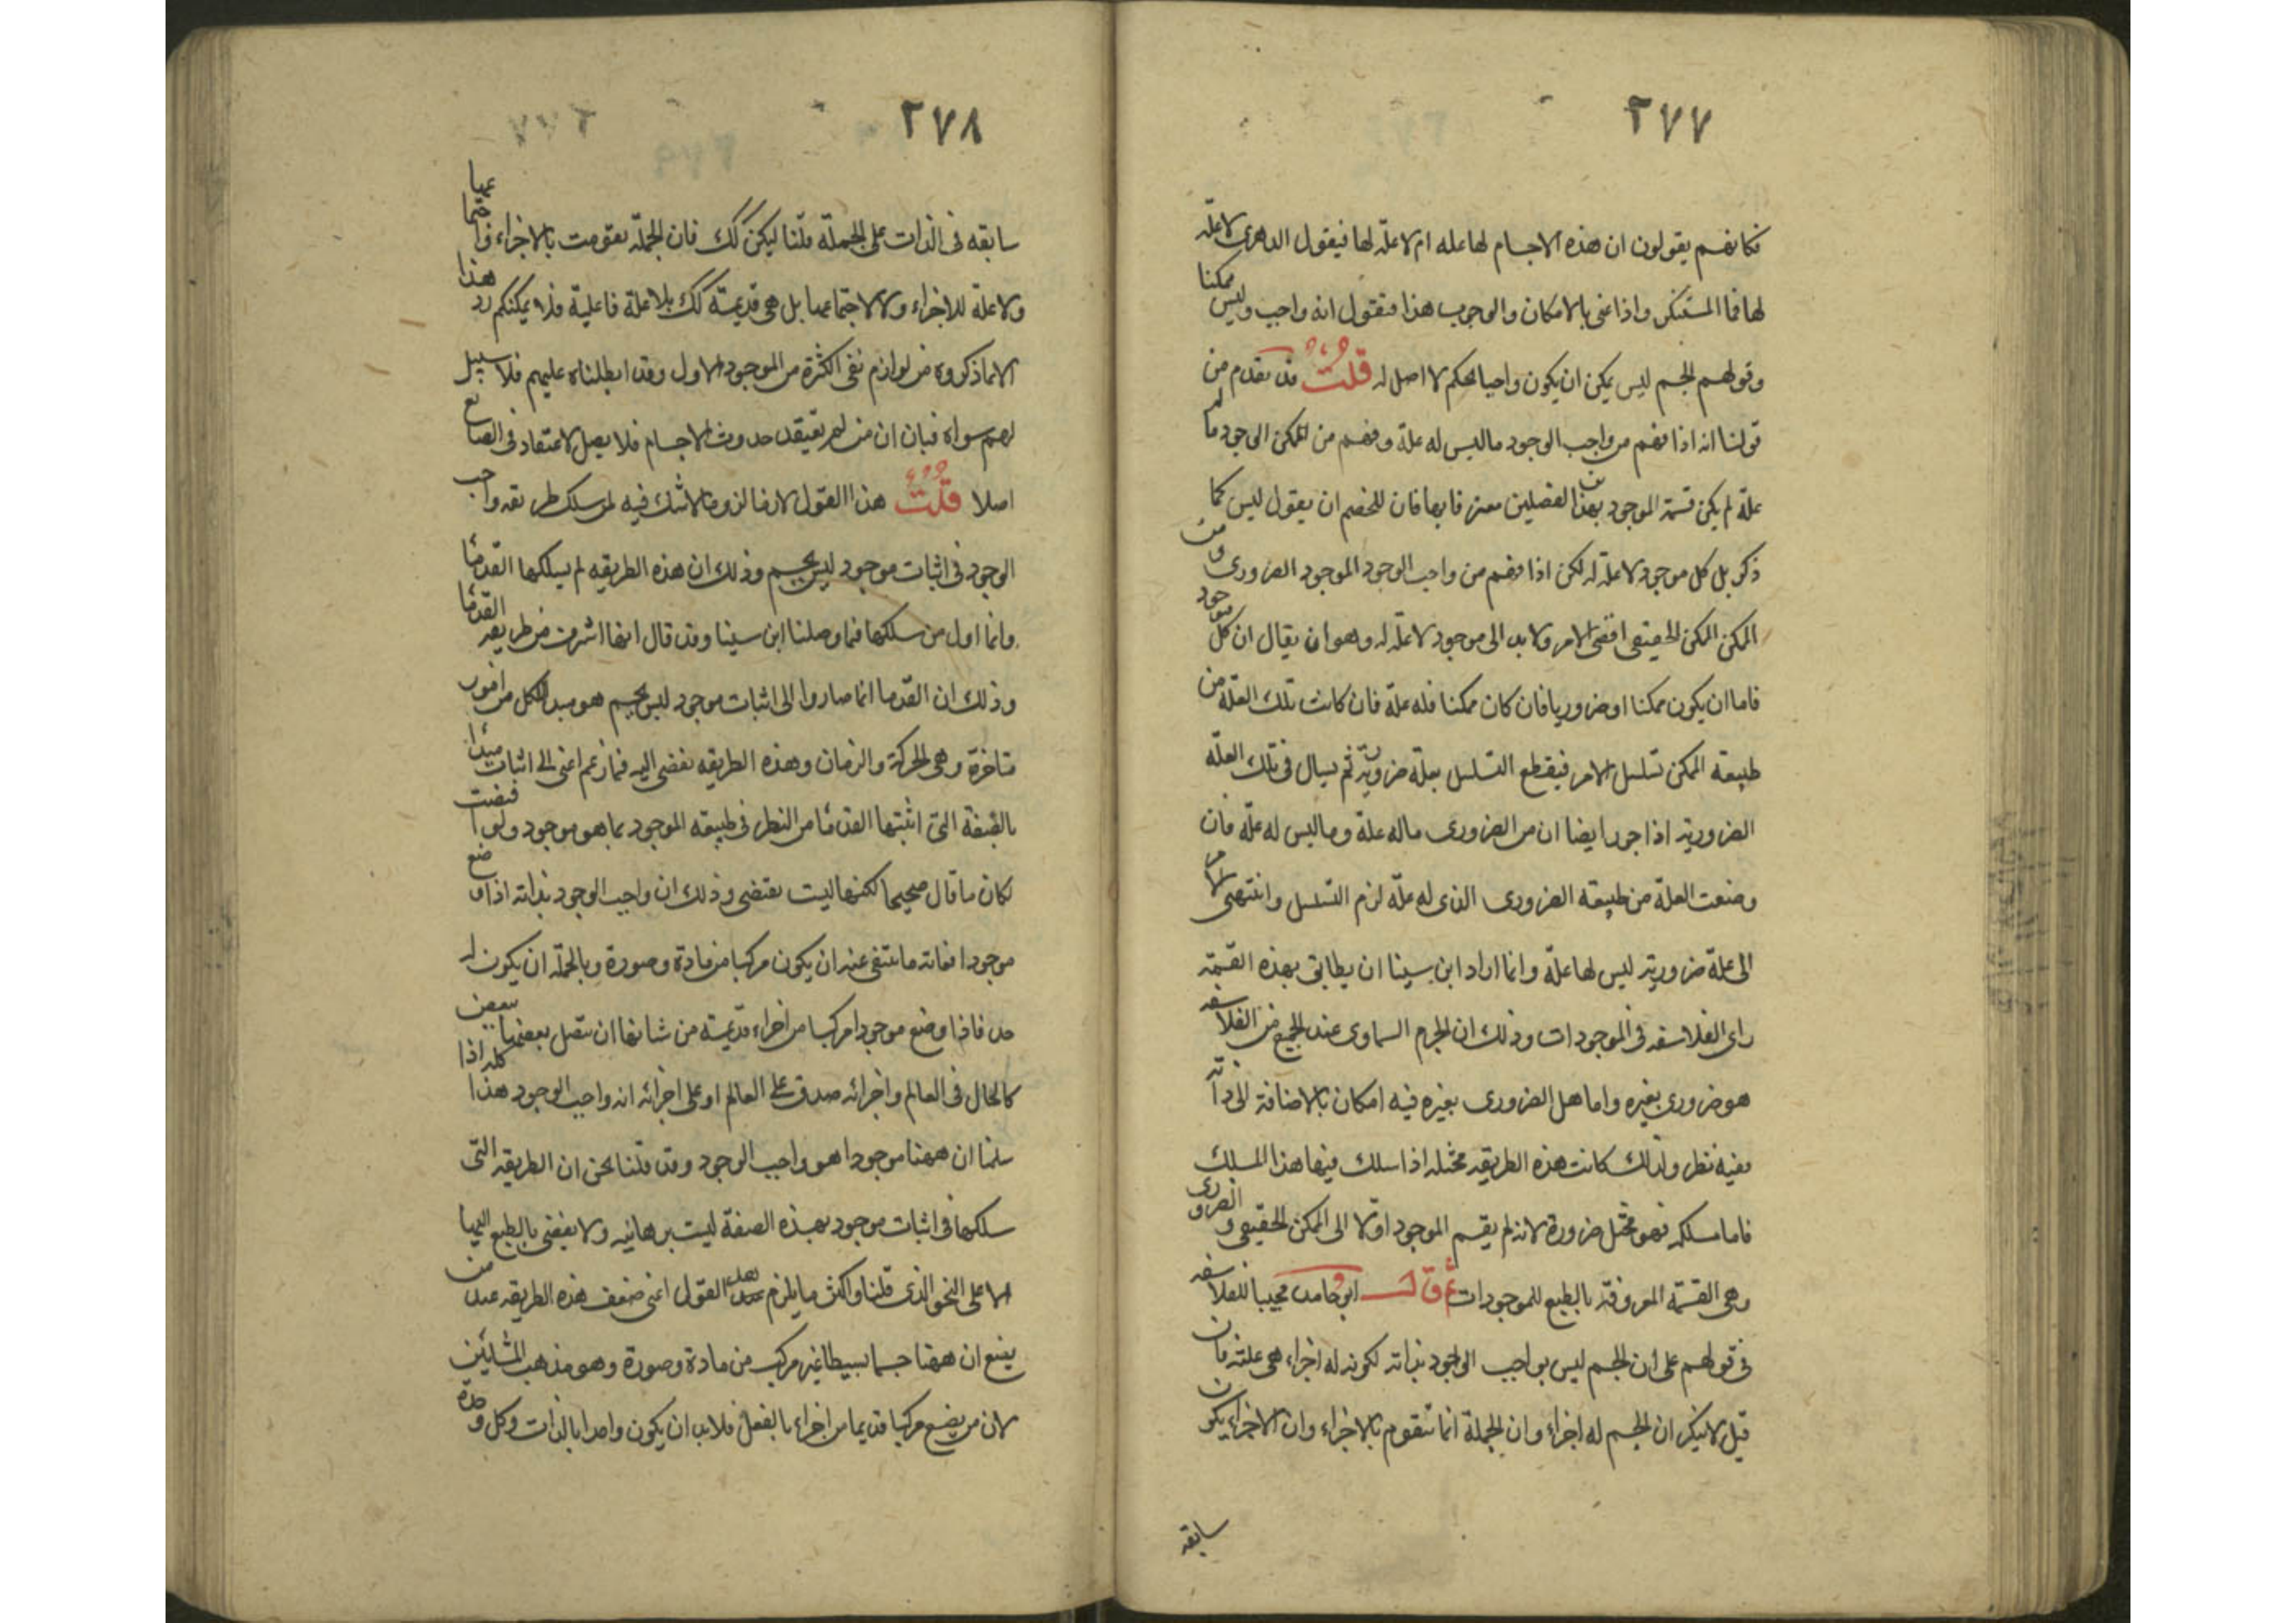 ٢٧٧
فكانهم يقولون ان هذه الاجسام لها عله ام لا علّة لها فيقول الدهرى لا علّة
لها فما المستنكر واذا عنى بالامكان والوجوب هذا فنقول انه واجب وليس ممكنا
وقولهم الجسم ليس يمكن ان يكون واجبا تحكم لا اصل له قلت قد تقدم من
قولنا انه اذا فهم من واجب الوجود ما ليس له علة وفهم من الممكن الوجود ما له
علّة لم يكن قسمة الموجود بهذين الفصلين معترفا بها فان للخصم ان يقول ليس كما
ذكر بل كل موجود لا علّة له لكن اذا فهم من واجب الوجود الموجود الضرورى ومن
الممكن الممكن الحقيقى افضى الامر ولا بد الى موجود لا علّة له وهو ان يقال ان كل موجود
فاما ان يكون ممكنا او ضروريا فان كان ممكنا فله علّة فان كانت تلك العلّة من
طبيعة الممكن تسلسل الامر فيقطع التسلسل بعلة ضرورية ثم يسال فى تلك العلّة
الضرورية اذا جوز ايضا ان من الضرورى ما له علة وما ليس له علّة فان
وضعت العلّة من طبيعة الضرورى الذى له علّة لزم التسلسل وانتهى الامر
الى علة ضرورية ليس لها علّة وانما اراد ابن سينا ان يطابق بهذه القسمة
راى الفلاسفه فى الموجودات وذلك ان الجرم السماوى عند الجميع من الفلاسفه
هو ضرورى بغيره واما هل الضرورى بغيره فيه امكان بالاضافة الى ذاته
ففيه نظر ولذلك كانت هذه الطريقه مختله اذا سلك فيها هذا المسلك
فاما مسلكه فهو مختل ضرورة لانه لم يقسم الموجود اوّلا الى الممكن الحقيقى والضرورى
وهى القسمة المعروفة بالطبع للموجودات ثم قال ابو حامد مجيبا للفلاسفه
فى قولهم على ان الجسم ليس بواجب الوجود بذاته لكونه له اجزاء هى علته فان
قيل لا ينكر ان الجسم له اجزاء وان الجملة انما تتقوم بالاجزاء وان الاجزاء يكون
سابقه
٢٧٨
سابقه فى الذات على الجملة قلنا ليكن كك فان الجملة تقومت بالاجزاء واجتماعها
ولا علة للاجزاء ولا لاجتماعها بل هى قديمة كك بلا علة فاعلية فلا يمكنكم رد هذا
الا بما ذكروه من لوازم نفى الكثرة من الموجود الاول وقد ابطلناه عليهم فلا سبيل
لهم سواه فبان ان من لم يعتقد حدوث الاجسام فلا يصل لاعتقاد فى الصانع
اصلا قلت هذا القول لازم لزوما لا شك فيه لمن سلك طريقه واجب
الوجود فى اثبات موجود ليس بجسم وذلك ان هذه الطريقه لم يسلكها القدماء
وانما اول من سلكها فيما وصلنا ابن سينا وقد قال انها اشرف من طريقه القدماء
وذلك ان القدما انما صاروا الى اثبات موجود ليس بجسم هو مبدا للكل من امور
متاخرة وهى الحركة والزمان وهذه الطريقه تفضى اليه فيما زعم اعنى الى اثبات مبدأ
بالصفة التى اثبتها القدماء من النظر فى طبيعة الموجود بما هو موجود ولو افضت
لكان ما قال صحيحا لكنها ليست تفضى وذلك ان واجب الوجود بذاته اذا وضع
موجودا فغاية ما ينتفى عنه ان يكون مركبا من مادة وصورة وبالجملة ان يكون له
حد فاذا وضع موجودا مركبا من اجزاء قديمة من شانها ان يتصل بعضها ببعض
كالحال فى العالم واجزائه صدق على العالم او على اجزائه انه واجب الوجود هذا كله اذا
سلمنا ان ههنا موجودا هو واجب الوجود وقد قلنا نحن ان الطريقه التى
سلكها فى اثبات موجود بهذه الصفة ليست برهانيه ولا يفضى بالطبع اليها
الا على النحو الذى قلنا واكثر ما يلزم هذا القول اعنى ضعف هذه الطريقه عند من
يضع ان ههنا جسما بسيطا غير مركب من مادة وصورة وهو مذهب المشائين
لان من يضع مركبا قديما من اجزاء بالفعل فلا بد ان يكون واحدا بالذات وكل وحدة